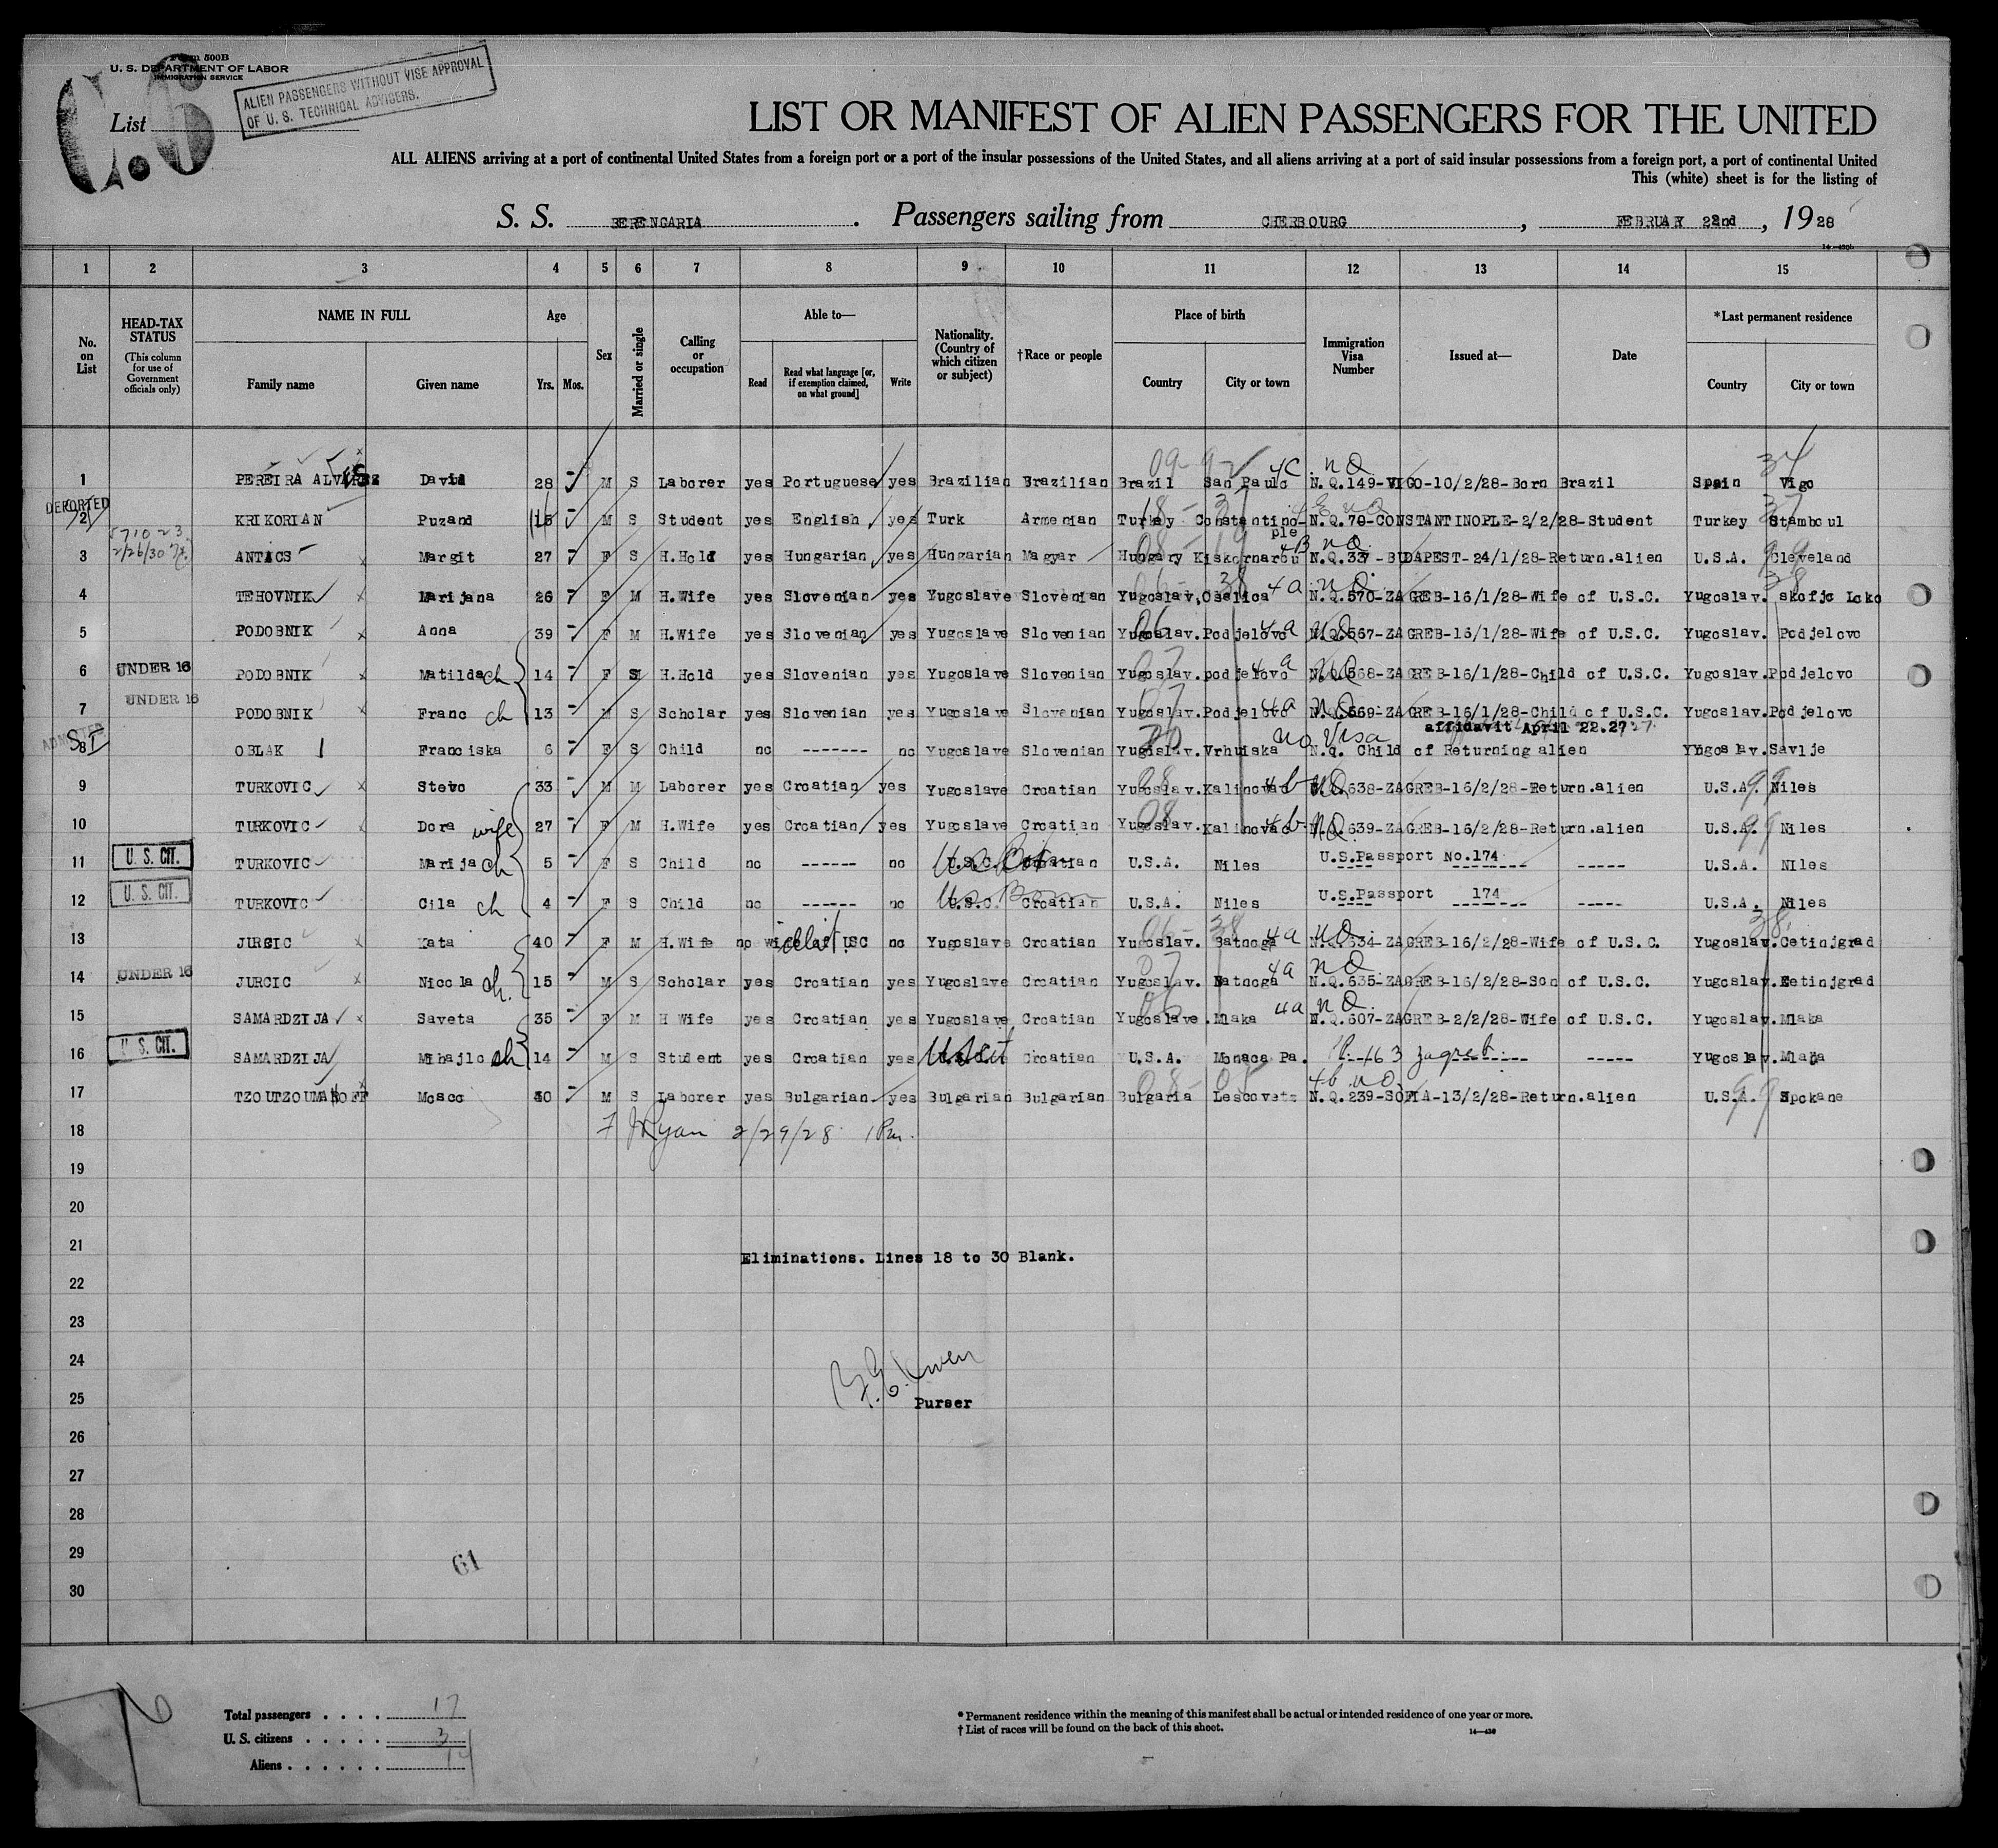 Form 500B
U. S. DEPARTMENT OF LABOR
IMMIGRATION SERVICE
C.S
List
ALIEN PASSENGERS WITHOUT VISE APPROVAL
OF U. S. TECHNICAL ADVISERS.
LIST OR MANIFEST OF ALIEN PASSENGERS FOR THE UNITED
ALL ALIENS arriving at a port of continental United States from a foreign port or a port of the insular possessions of the United States, and all aliens arriving at a port of said insular possessions from a foreign port, a port of continental United
This (white) sheet is for the listing of
S. S. BERENGARIA. Passengers sailing from CHERBOURG, FEBRUARY 22nd, 1928
1 2 3 4 5 6 7 8 9 10 11 12 13 14 15
No. on List
HEAD-TAX STATUS (This column for use of Government officials only)
NAME IN FULL
Family name Given name
Age
Yrs. Mos.
Sex
Married or single
Calling or occupation
Able to—
Read Read what language [or, if exemption claimed, on what ground] Write
Nationality. (Country of which citizen or subject)
†Race or people
Place of birth
Country City or town
Immigration Visa Number
Issued at—
Date
*Last permanent residence
Country City or town
1 PEREIRA ALVES David 28 M S Laborer yes Portuguese yes Brazilian Brazilian Brazil San Paulo 4C N.Q.149-VIGO-10/2/28-Born Brazil Spain Vigo
DEPORTED
2 KRIKORIAN Puzand 15 M S Student yes English yes Turk Armenian Turkey Constantinople N.Q.76-CONSTANTINOPLE-2/2/28-Student Turkey Stamboul
3 2/26/30 ANTACS Margit 27 F S H.Hold yes Hungarian yes Hungarian Magyar Hungary Kiskornarou 4B N.Q.337-BUDAPEST-24/1/28-Return.alien U.S.A. Cleveland
4 TEHOVNIK Marijana 26 F M H.Wife yes Slovenian yes Yugoslave Slovenian Yugoslav. Oselica 4a N.Q.570-ZAGREB-16/1/28-Wife of U.S.C. Yugoslav. skofjo Loko
5 PODOBNIK Anna 39 F M H.Wife yes Slovenian yes Yugoslave Slovenian Yugoslav. Podjelovo 4a N.Q.567-ZAGREB-16/1/28-Wife of U.S.C. Yugoslav. Podjelovo
6 UNDER 16 PODOBNIK Matilda ch 14 F S H.Hold yes Slovenian yes Yugoslave Slovenian Yugoslav. podjelovo 4a N.Q.568-ZAGREB-16/1/28-Child of U.S.C. Yugoslav. Podjelovo
7 UNDER 16 PODOBNIK Franc ch 13 M S Scholar yes Slovenian yes Yugoslave Slovenian Yugoslav. Podjelovo 4a N.Q.569-ZAGREB-16/1/28-Child of U.S.C. Yugoslav. Podjelovo
ADMITTED no Visa affidavit April 22.27
8 SI OBLAK Franciska 6 F S Child no ------- no Yugoslave Slovenian Yugoslav. Vrhuiska N.q. Child of Returning alien Yugoslav. Savlje
9 TURKOVIC Stevo 33 M M Laborer yes Croatian yes Yugoslave Croatian Yugoslav. Kalinovac 4b N.Q.638-ZAGREB-16/2/28-Return.alien U.S.A. Niles
10 TURKOVIC Dora wife 27 F M H.Wife yes Croatian yes Yugoslave Croatian Yugoslav. Kalinovac 4b N.Q.639-ZAGREB-16/2/28-Return.alien U.S.A. Niles
11 U. S. CIT. TURKOVIC Marija ch 5 F S Child no ------ no U.S.C. Croatian U.S.A. Niles U.S.Passport No.174 ----- U.S.A. Niles
12 U. S. CIT. TURKOVIC Cila ch 4 F S Child no ------ no U.S.C. Croatian U.S.A. Niles U.S.Passport 174 ----- U.S.A. Niles
13 JURCIC Kata 40 F M H.Wife no USC no Yugoslave Croatian Yugoslav. Batnoga 4a N.Q.634-ZAGREB-16/2/28-Wife of U.S.C. Yugoslav. Cetinjgrad
14 UNDER 16 JURCIC Nicola ch. 15 M S Scholar yes Croatian yes Yugoslave Croatian Yugoslav. Batnoga 4a N.Q.635-ZAGREB-16/2/28-Son of U.S.C. Yugoslav. Cetinjgrad
15 SAMARDZIJA Saveta 35 F M H Wife yes Croatian yes Yugoslave Croatian Yugoslave. Mlaka 4a N.Q.607-ZAGREB-2/2/28-Wife of U.S.C. Yugoslav. Mlaka
16 U. S. CIT. SAMARDZIJA Mihajlo ch 14 M S Student yes Croatian yes US Cit Croatian U.S.A. Monaca Pa. 163 Zagreb ----- Yugoslav. Mlaka
17 TZOUTZOUMANOFF Mosco 40 M S Laborer yes Bulgarian yes Bulgarian Bulgarian Bulgaria Lescovets 4b N.Q.239-SOFIA-13/2/28-Return.alien U.S.A. Spokane
18 Ryan 2/29/28 1 Pm.
19
20
21 Eliminations. Lines 18 to 30 Blank.
22
23
24
25 Purser
26
27
28
29 61
30
Total passengers . . . . 17
U. S. citizens . . . . . 3
Aliens . . . . . . 14
* Permanent residence within the meaning of this manifest shall be actual or intended residence of one year or more.
† List of races will be found on the back of this sheet.
14—430